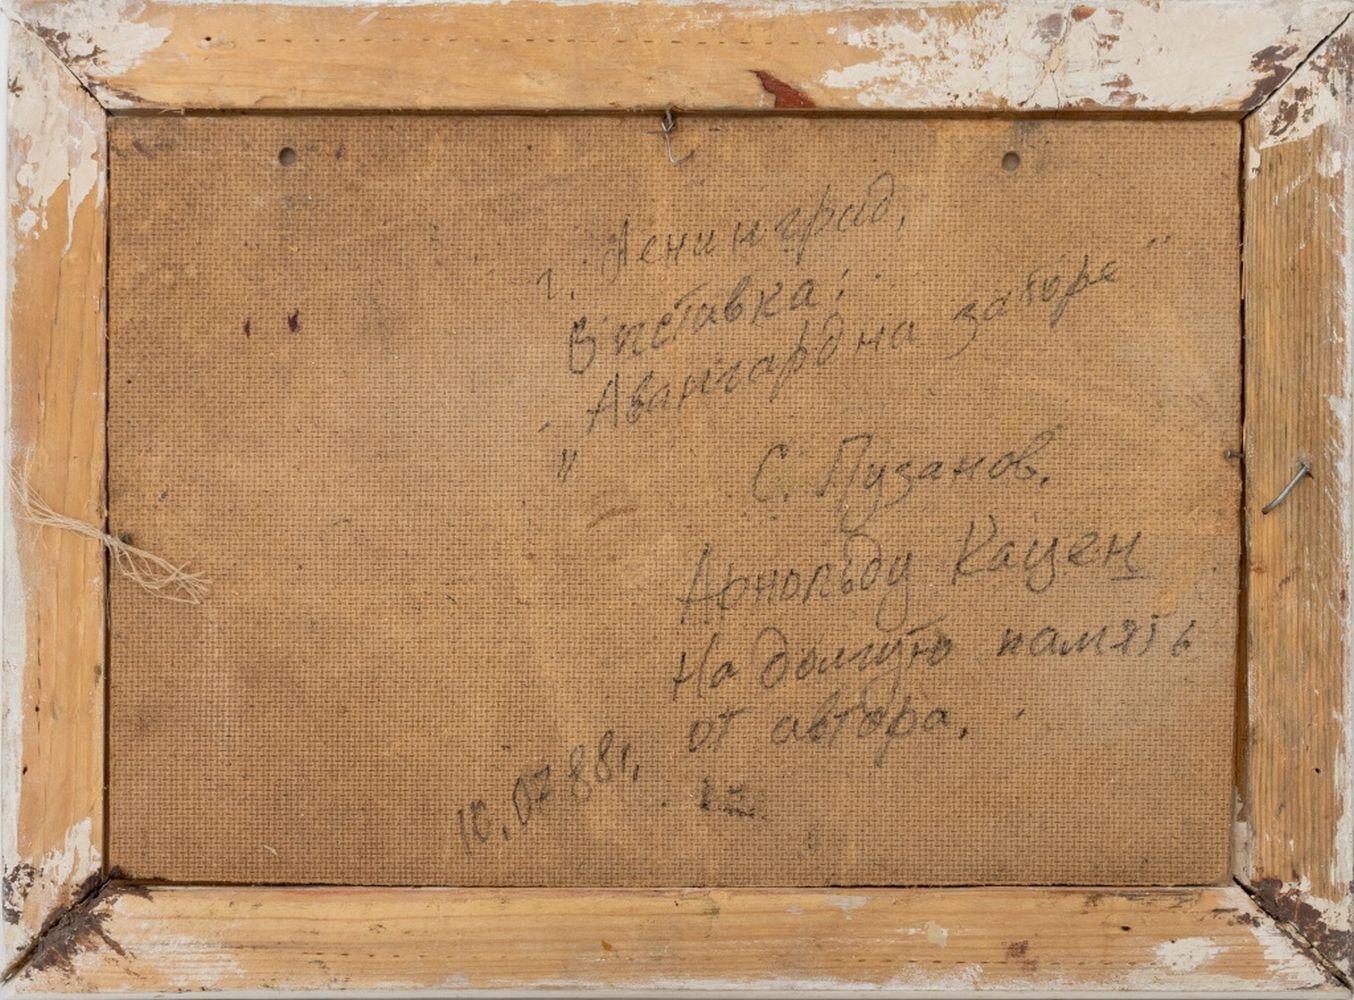 г. Ленинград,
Выставка:
"Авангард на заборе"
С. Пузанов.
Арнольду Кацен
На долгую память
от автора.
10.07.88г.